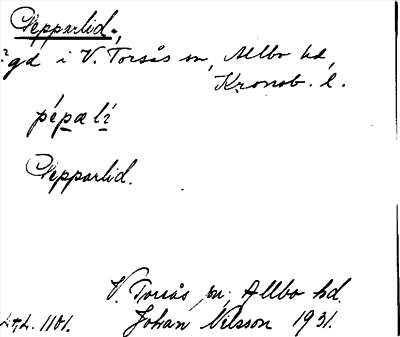 Pepparlid.,
gd i V. Torsås sn, Allbo hd,
Kronob. l.
pépæ lí
Pepparlid.
V. Torsås sn, Allbo hd.
1101. Johan Nilsson 1931.